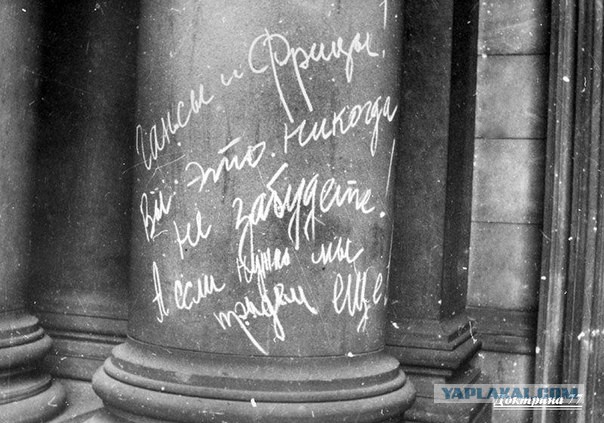 Гансы и Фрицы!
Вы. это. никогда
не забудете!
А если нужно мы
придем еще!
YAPLAKAL.COM
Доктрина 77